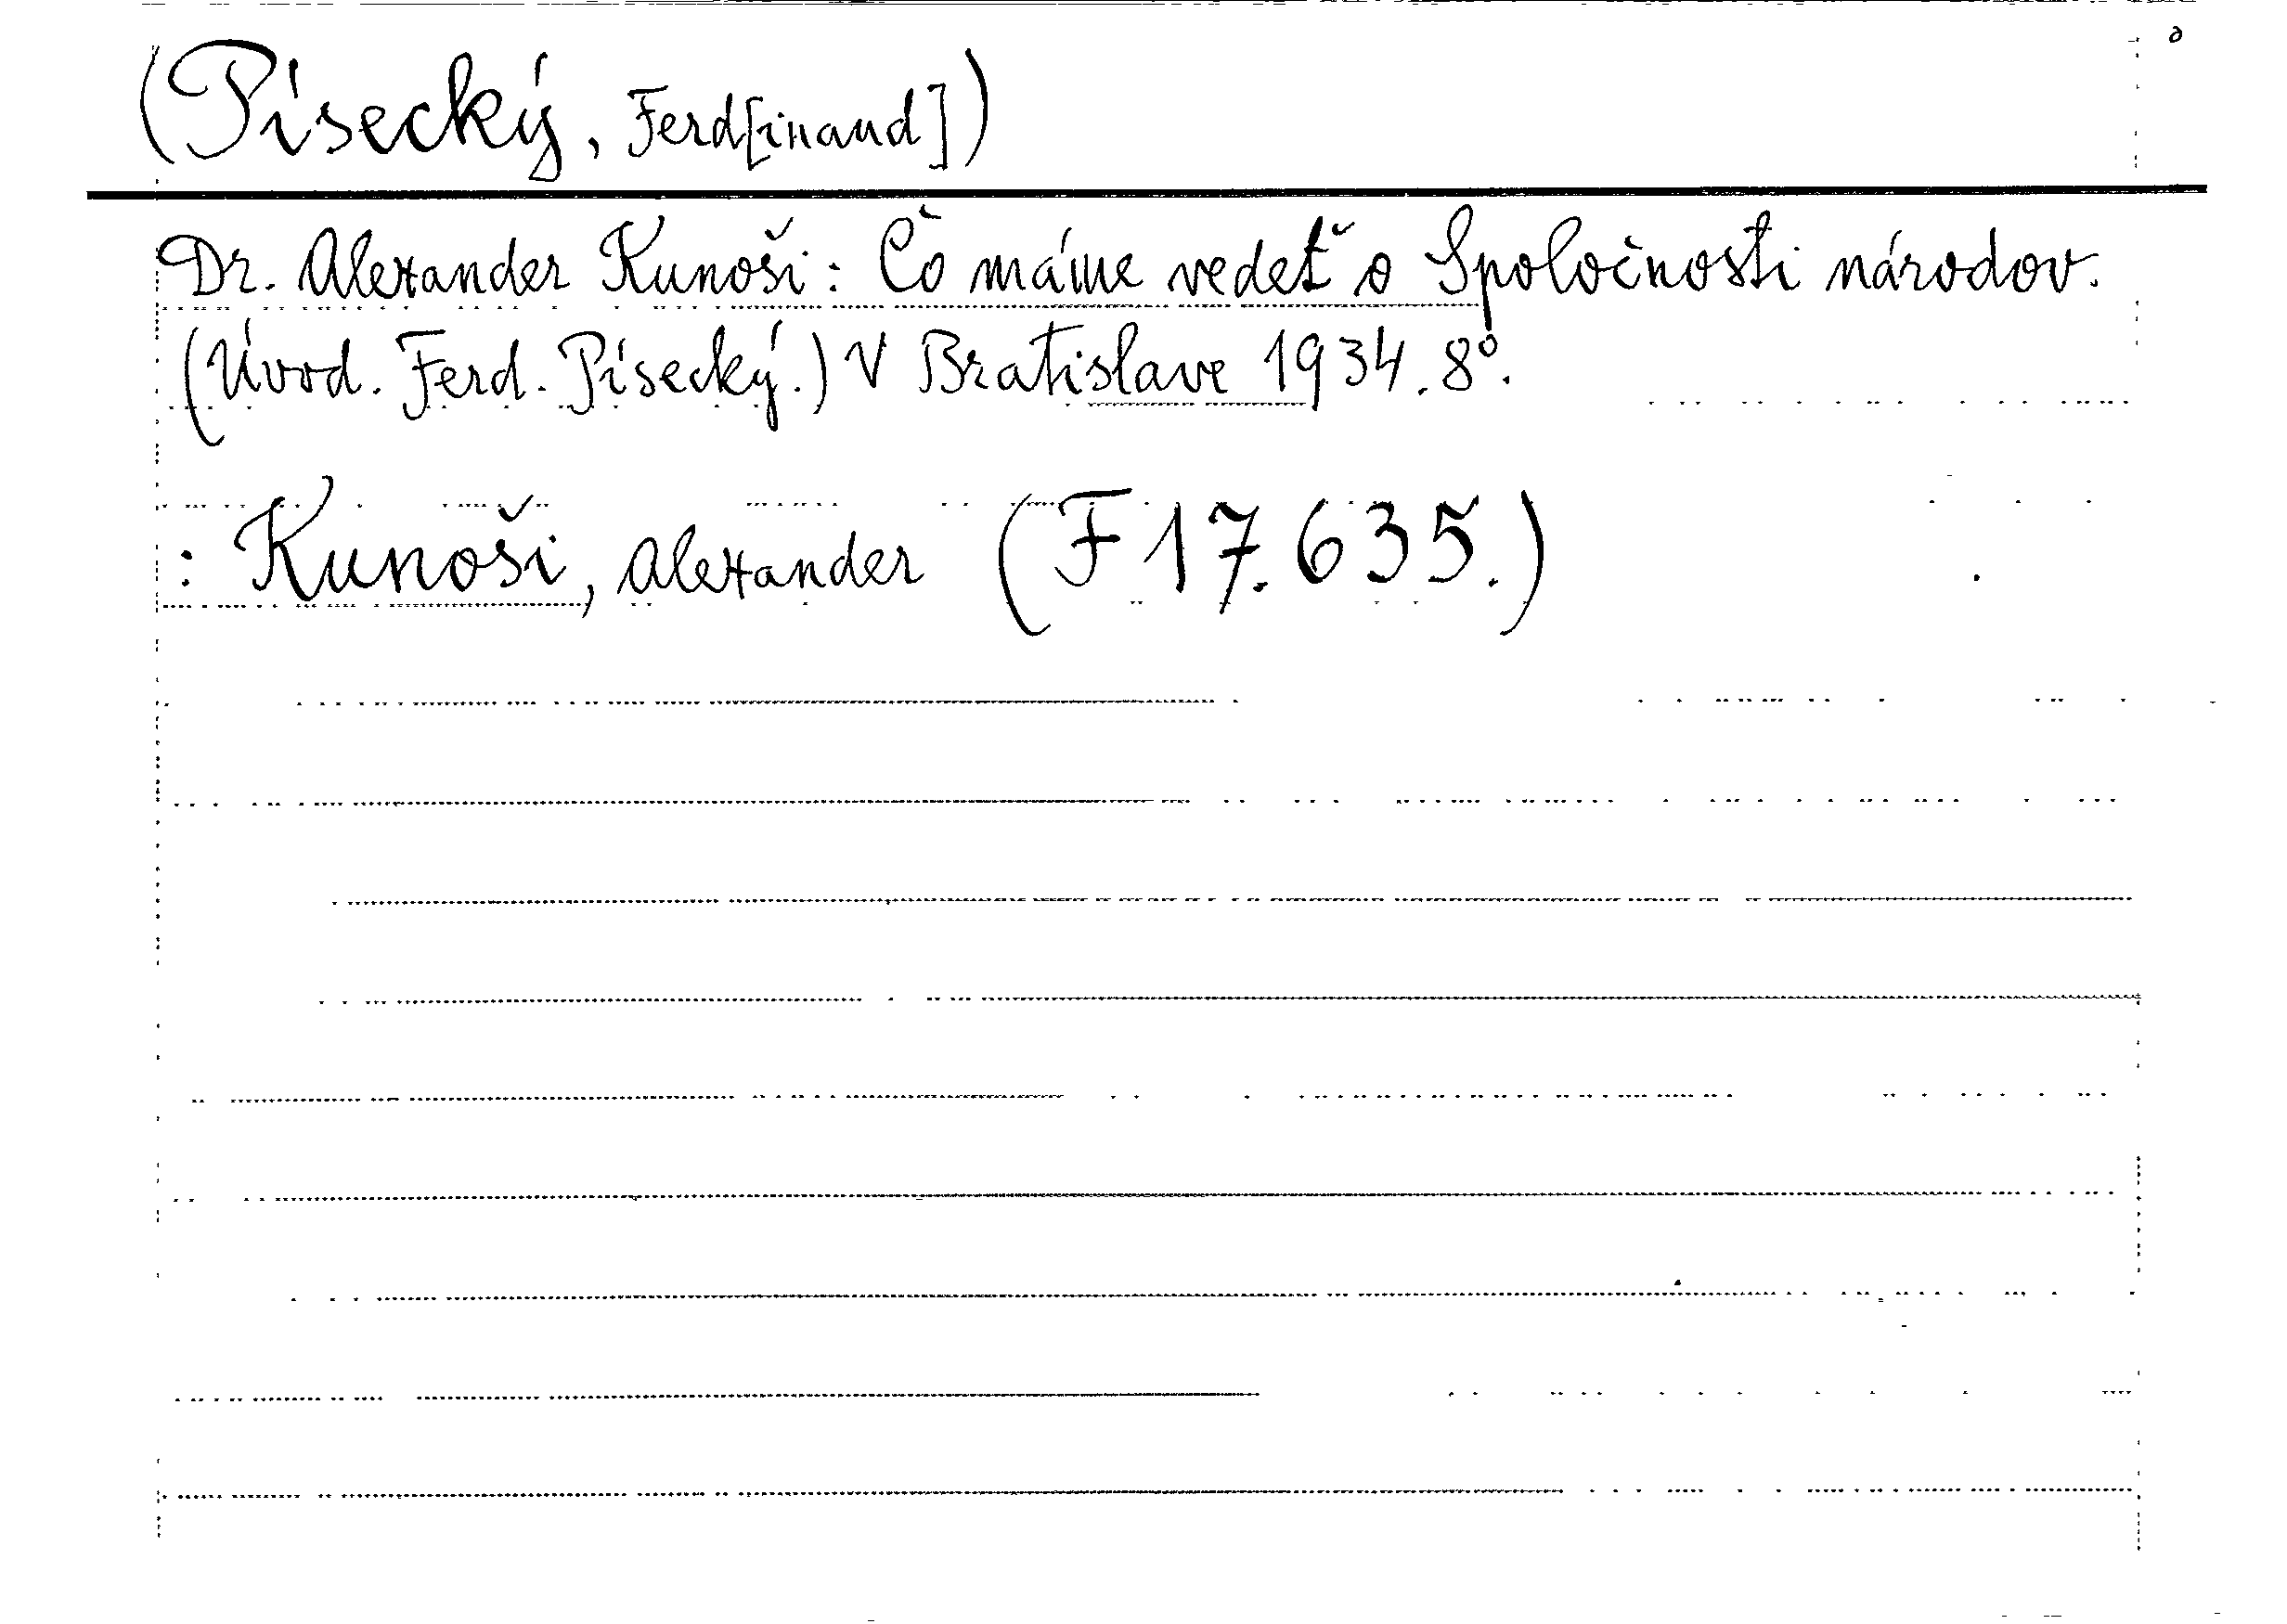 (Písecký, Ferd[inand])
Dr. Alexander Kunoši: Čo máme vedeť o Spoločnosti národov.
(Úvod. Ferd. Písecký.) V Bratislave 1934. 8°.
: Kunoši, Alexander (F 17.635.)